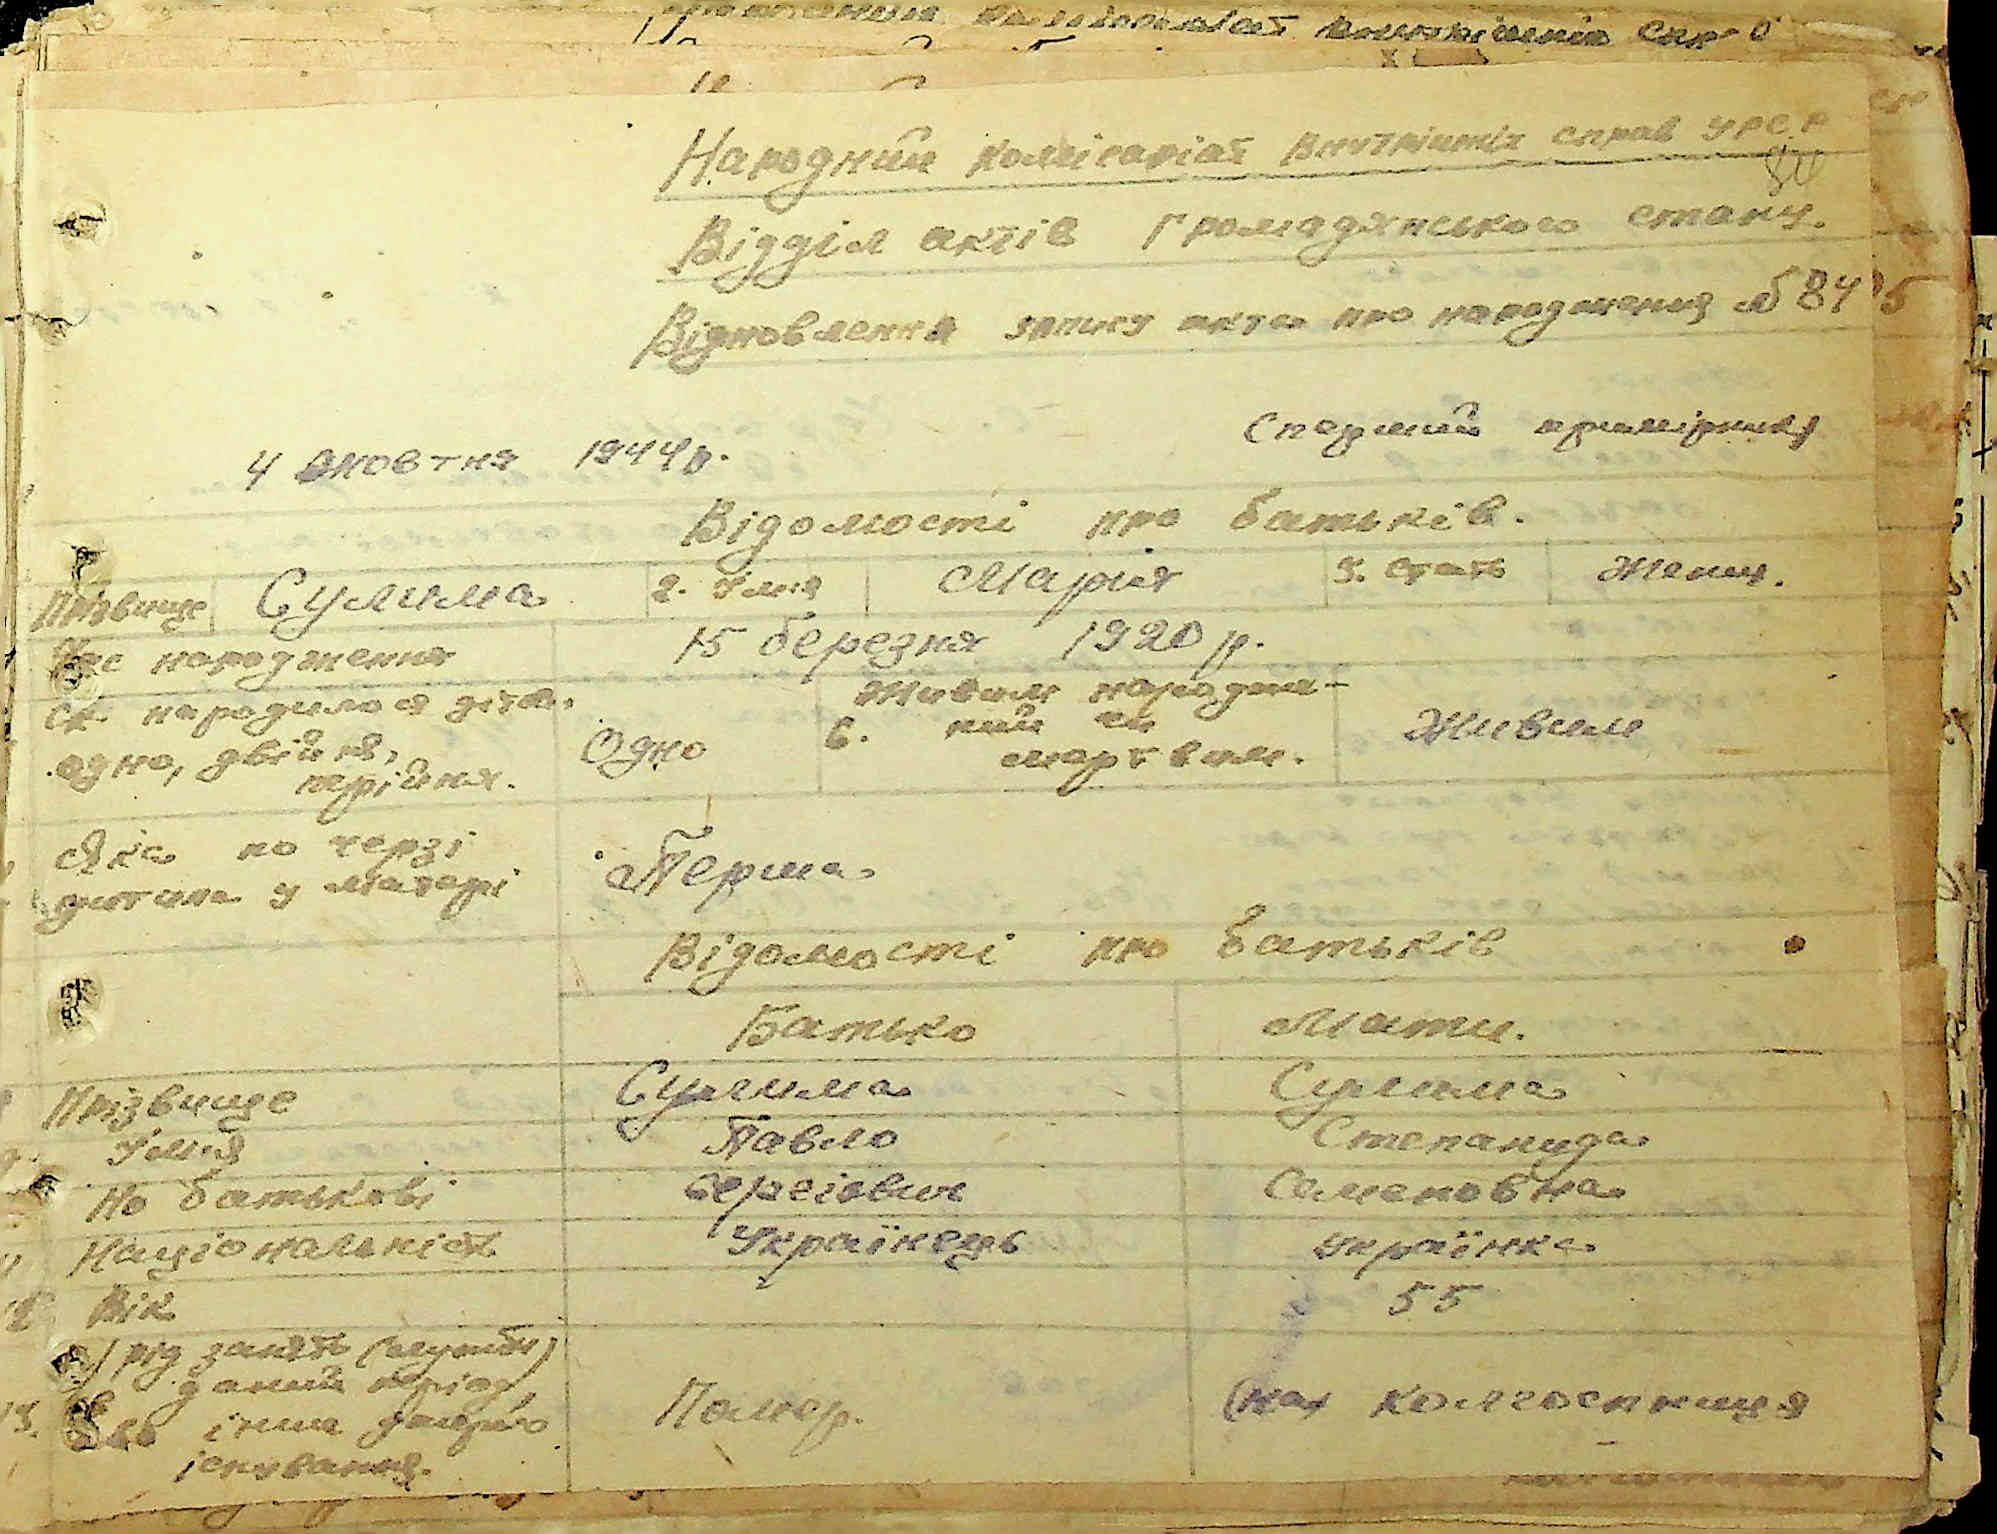 Народний комісаріат внутрішніх справ УРСР
50
Відділ актів громадянського стану.
Відновлення запису акта про народження № 84
4 жовтня 1944 р. (перший примірник)
Відомості про батьків.
Прізвище Сулима 2. Імня Марія 3. Стать Жєноч.
Час народження 15 березня 1920 р.
Ск. народилося дітей. Живим народже-
одно, двійня, Одно 6. ний чи Живим
трійня. мертвим.
Яка по черзі
дитина у матері Перша
Відомості про батьків
Батько Мати.
Прізвище Сулима Сулима
Імня Павло Степанида
По батькові Сергіович Семеновна
Національність Українець Українка
Вік 55
рід занять (служби)
даний період, Помер. колгоспниця
13. або інше джерело
існування.